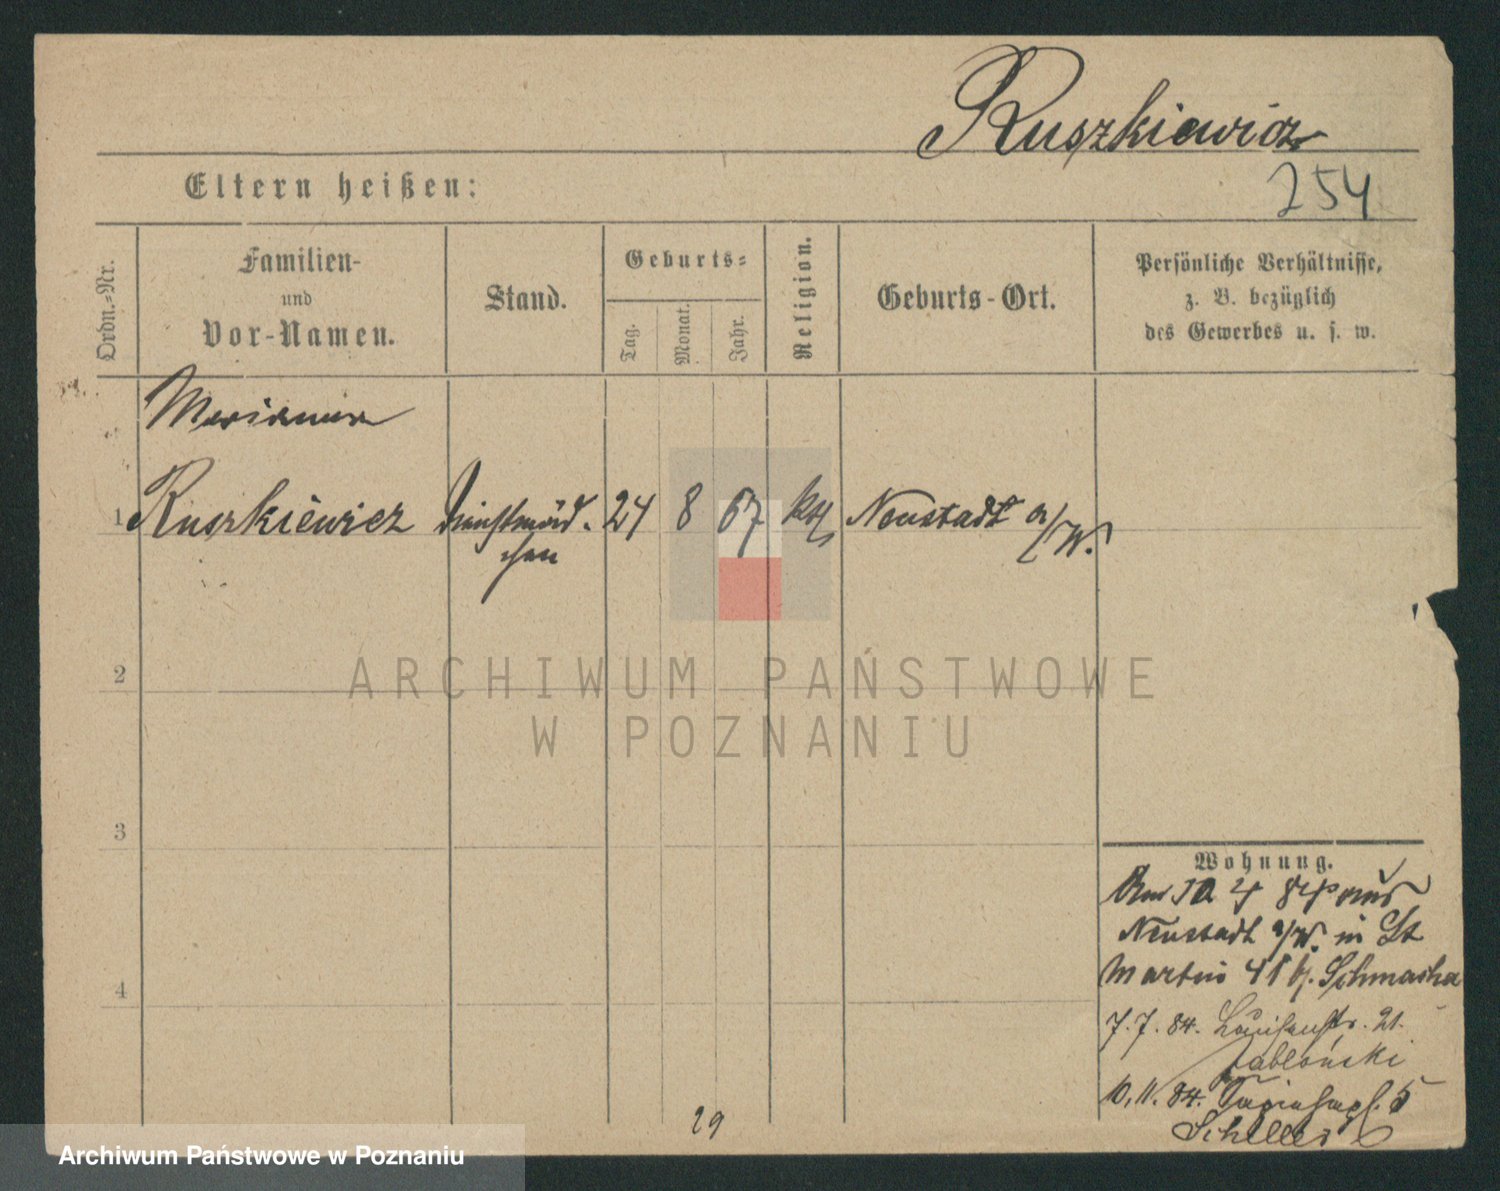 Ruszkiewicz
Eltern heißen:
254
Ordn.-Nr.
Familien-
und
Vor-Namen.
Stand.
Geburts-
Tag.
Monat.
Jahr.
Religion.
Geburts-Ort.
Persönliche Verhältnisse,
z. B. bezüglich
des Gewerbes u. s. w.
Marianna
1 Ruszkiewicz Dienstmäd- 24 8 67 kth Neustadt a/W.
chen
2
ARCHIWUM PAŃSTWOWE
W POZNANIU
3
Wohnung.
84 aus
Neustadt a/W. in St
Martin 41 b. Schmacha
4
7.7.84. Louisenstr. 21.
Jabłoński
10.11.84. 5
Schiller
29
Archiwum Państwowe w Poznaniu